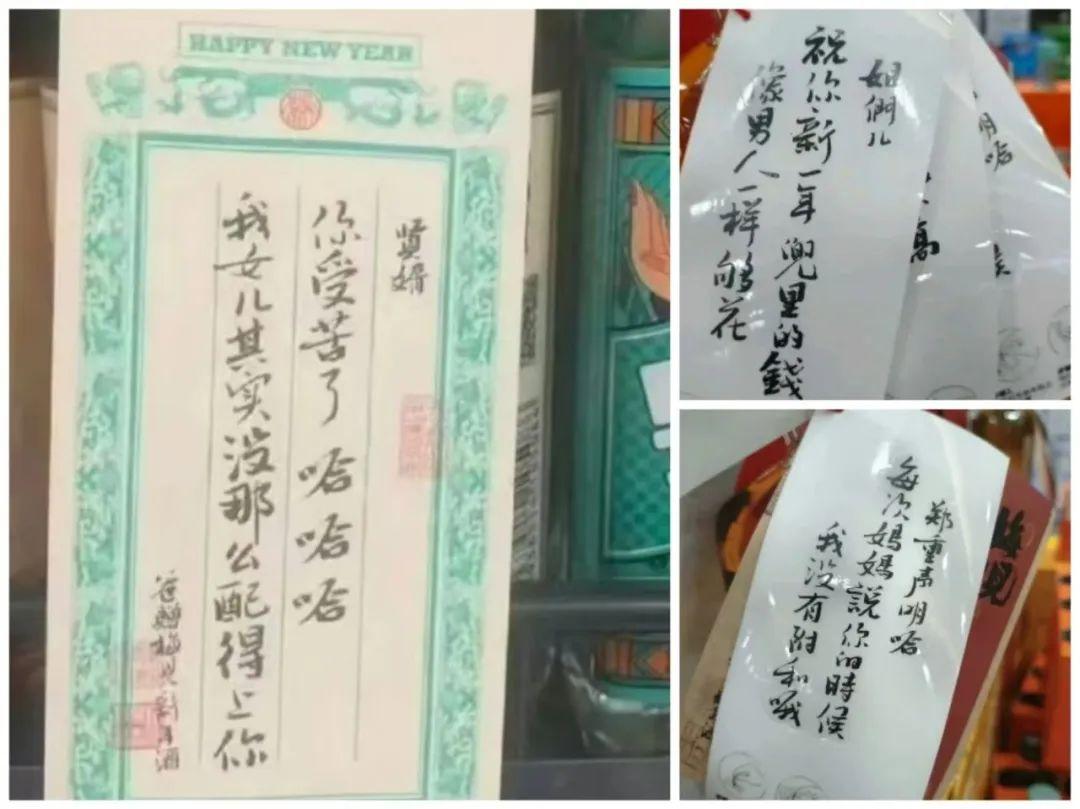 HAPPY NEW YEAR
贤婿
你受苦了 哈哈哈
我女儿其实没那么配得上你
爸赠梅见新年酒
姐們儿
祝你新一年兜里的錢
像男人一样够花
明哈
高
郑重声明哈
每次媽媽說你的時候
我没有附和哦
梅見